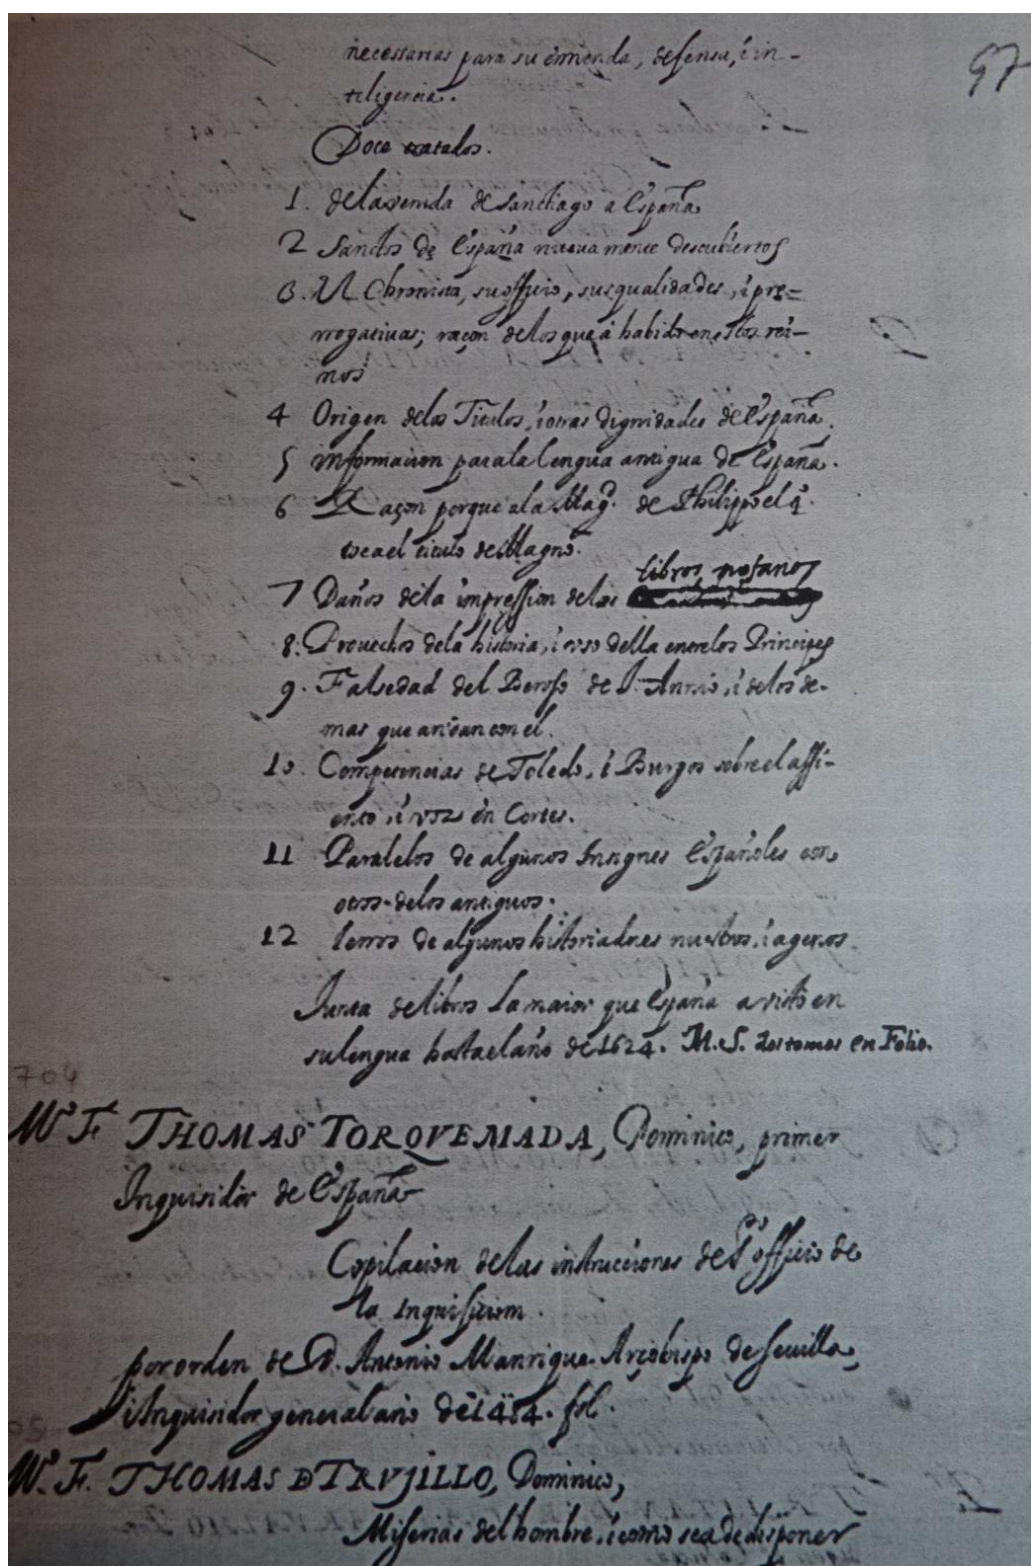 97
necessarias para su émienda, defensa, é in-
teligencia.
Doce tratados.
1. dela venida de Santiago a España
2 Sanctos de España nueuamente descubiertos
3. El Chronista, su officio, sus qualidades, i pre=
rrogatiuas; raçon delos que á habido en estos rei-
nos
4 Origen delos Titulos, i otras dignidades de España.
5 informacion para la lengua antigua de España.
6 Raçon porque a la Magd. de Philippo el 4.
se a el titulo de Magno.
libros profanos
7 Daños de la impression de los
8. Prouechos dela historia, i uso della entre los Principes
9. Falsedad del Beroso de J. Annio, i de los de-
mas que andan con el.
10. Competencias de Toledo, i Burgos sobre el assi-
ento, i voz en Cortes.
11 Paralelos de algunos Insignes Españoles con
otros delos antiguos.
12 ierros de algunos historiadores nuestros, i agenos.
Junta de libros La maior que España a visto en
su lengua hasta el año de 1624. M.S. dos tomos en Folio.
704
M. F. THOMAS TORQVEMADA, Dominico, primer
Inquisidor de España
Copilacion de las instrucciones del S.º officio de
la Inquisicion.
por orden de D. Antonio Manrique Arçobispo de Seuilla,
i Inquisidor general año de 1484. fol.
M. F. THOMAS D TRVJILLO, Dominico,
Miserias del hombre, i como se a de disponer